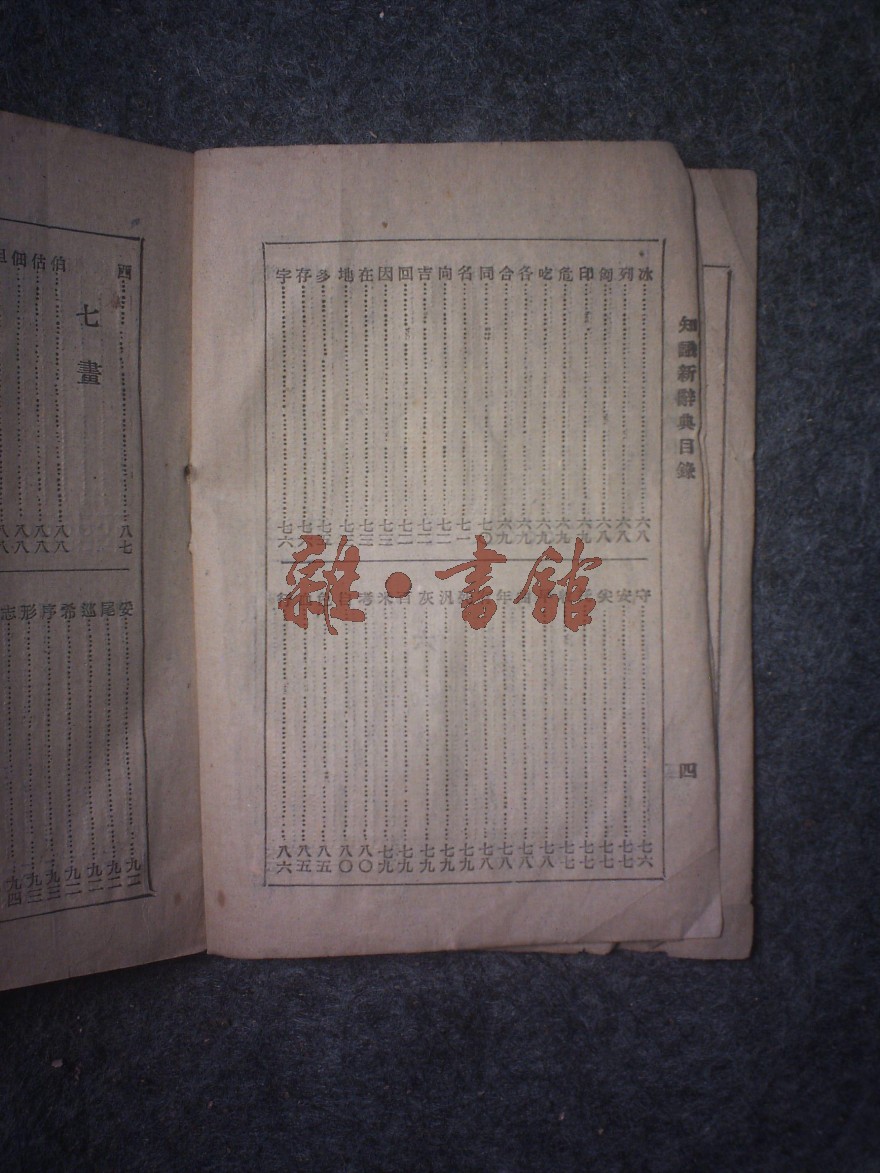 知識新辭典目錄
四
冰 六八
列 六八
匈 六八
印 六九
危 六九
吃 六九
各 六九
合 六九
同 七〇
名 七一
向 七二
吉 七二
回 七二
因 七三
在 七三
地 七三
多 七五
存 七六
字 七六
守 七六
安 七七
七七
七七
七七
七八
七八
年 七八
七八
七九
汎 七九
灰 七九
百 七九
米 七九
考 八〇
八〇
八五
八五
八六
雜·書館
八七
七畫
伯 八八
估 八八
佃 八八
妥 九二
尾 九二
巡 九二
希 九二
序 九三
形 九三
志 九四